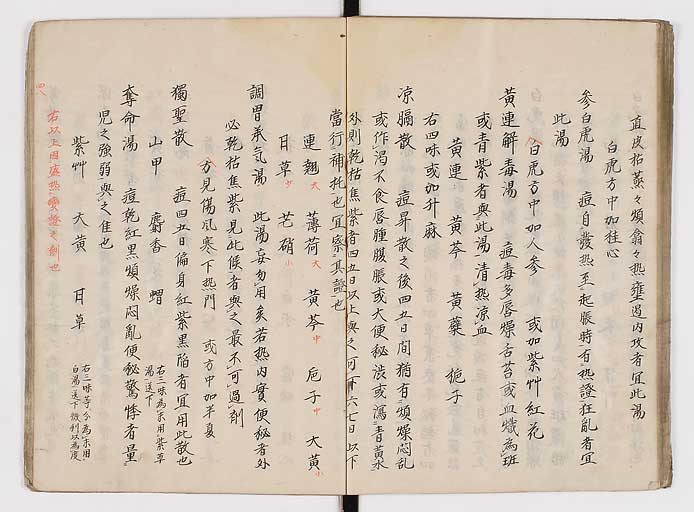 直皮枯燕々煩翕々熱壅遏内攻者宜此湯
白虎方中加桂心
参白虎湯 痘自發熱至起脹時有熱證狂亂者宜
此湯
白虎方中加人参 或加紫艸紅花
黄連解毒湯 痘毒多唇燥舌苔或血熾為斑
或青紫者與此湯清熱凉血
黄連 黄芩 黄蘗 梔子
右四味或加升麻
凉膈散 痘昇散之後四五日間猶有煩燥悶乱
或作渇不食唇腫腹脹或大便秘澁或瀉青黄水
外則乾枯焦紫者四五日以上與之可十六七日以下
當行補托也宜察其證也
連翹大 薄荷大 黄芩中 梔子中 大黄小
甘草少 芒硝小
調胃承気湯 此湯妄勿用矣若熱内實便秘者外
必乾枯焦紫見此候者與之最不可過劑
方見傷風寒下熱門 或方中加半夏
獨聖散 痘四五日偏身紅紫黒陥者宜用此散也
山甲 麝香 蝟 右三味為末用紫草湯送下
奪命湯 痘乾紅黒煩燥悶亂便秘驚悸者量
児之強弱與之佳也
紫艸 大黄 甘草 右三味等分為末用白湯送下微利以為度
右以上用盛熱實證之劑也